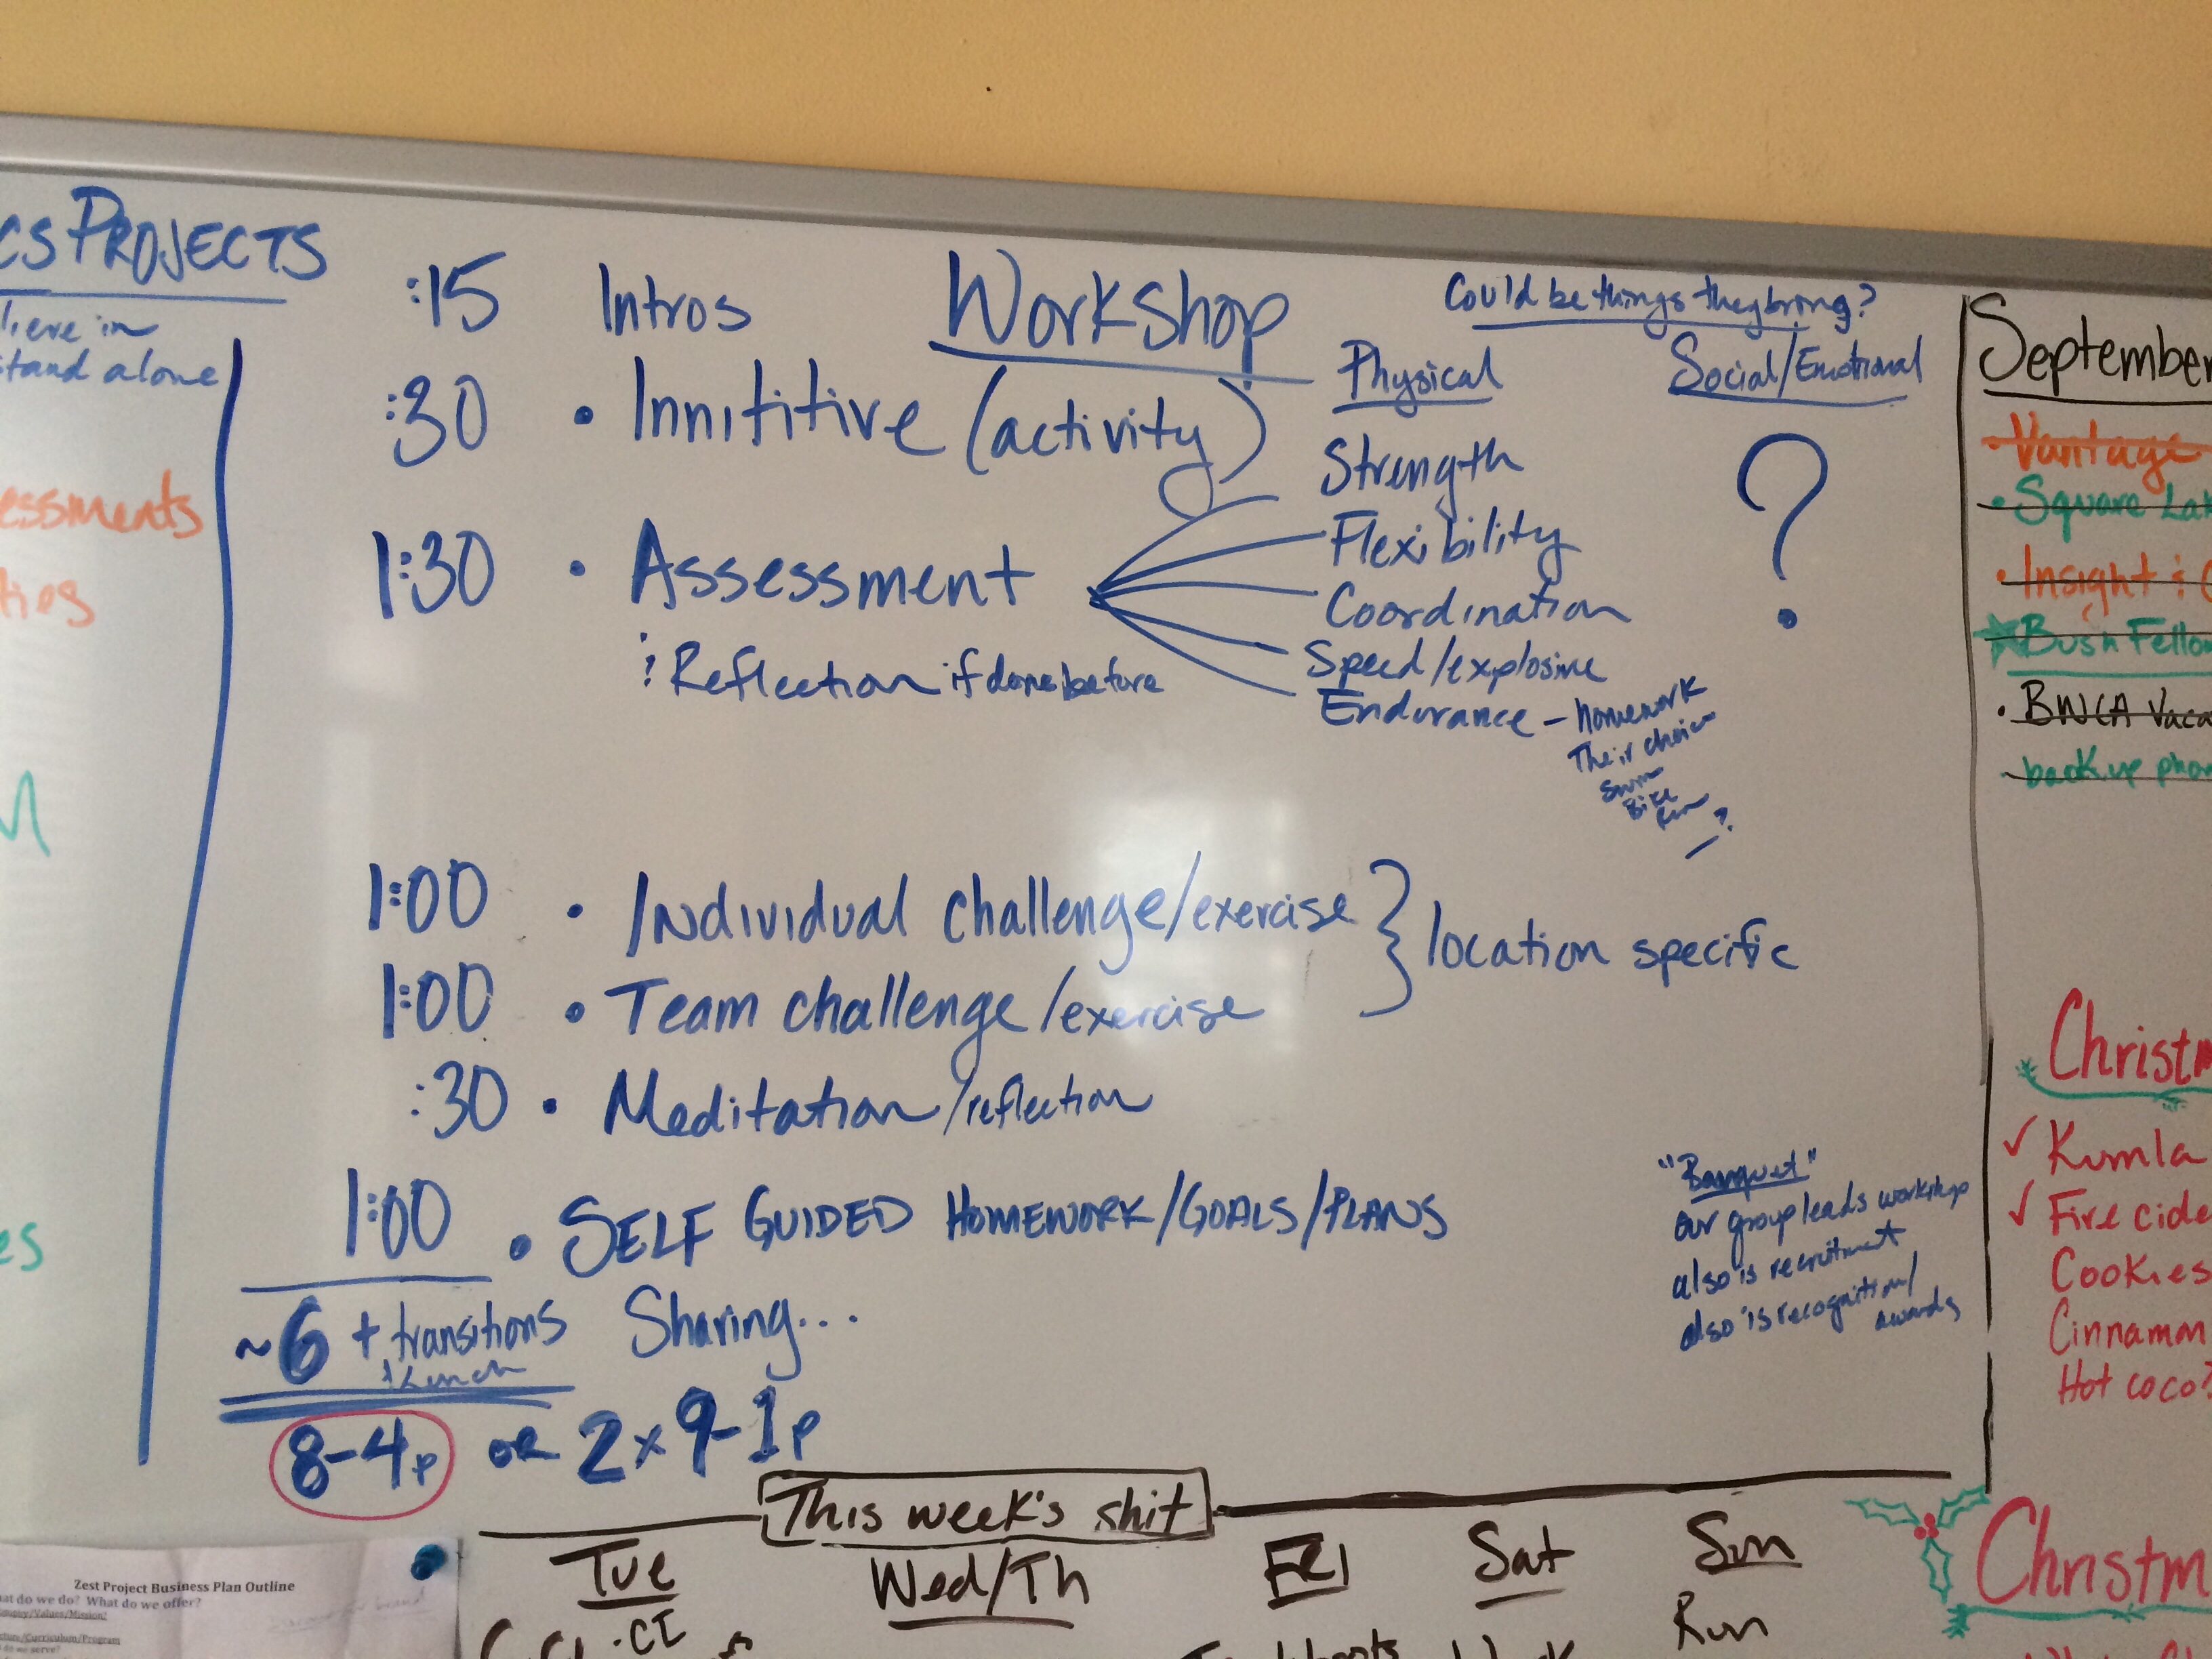 CS PROJECTS
stand alone
essments
ties
es
Workshop
:15 Intros
:30 • Innititive (activity)
1:30 • Assessment
: Reflection if done before
Could be things they bring?
Physical
Strength
Flexibility
Coordination
Speed/explosive
Endurance - homework
Their choice
Swim
Bike
Run ?
Social/Emotional
?
1:00 • Individual challenge/exercise
1:00 • Team challenge/exercise
} location specific
:30 • Meditation/reflection
1:00 • SELF GUIDED HOMEWORK/GOALS/PLANS
~6 + transitions
+ lunch
Sharing...
8-4p OR 2 x 9-1p
"Banquet"
our group leads workshop
also is recruitment
also is recognition/
awards
September
• Vantage
• Square Lak
• Insight &
Bush Fello
• BWCA Vaca
- backup phon
Christm
✓ Kumla
✓ Fire cide
Cookies
Cinnamon
Hot coco?
Christm
This week's shit
Tue
• CI
Wed/Th
FRI
Sat
Sun
Run
Zest Project Business Plan Outline
at do we do? What do we offer?